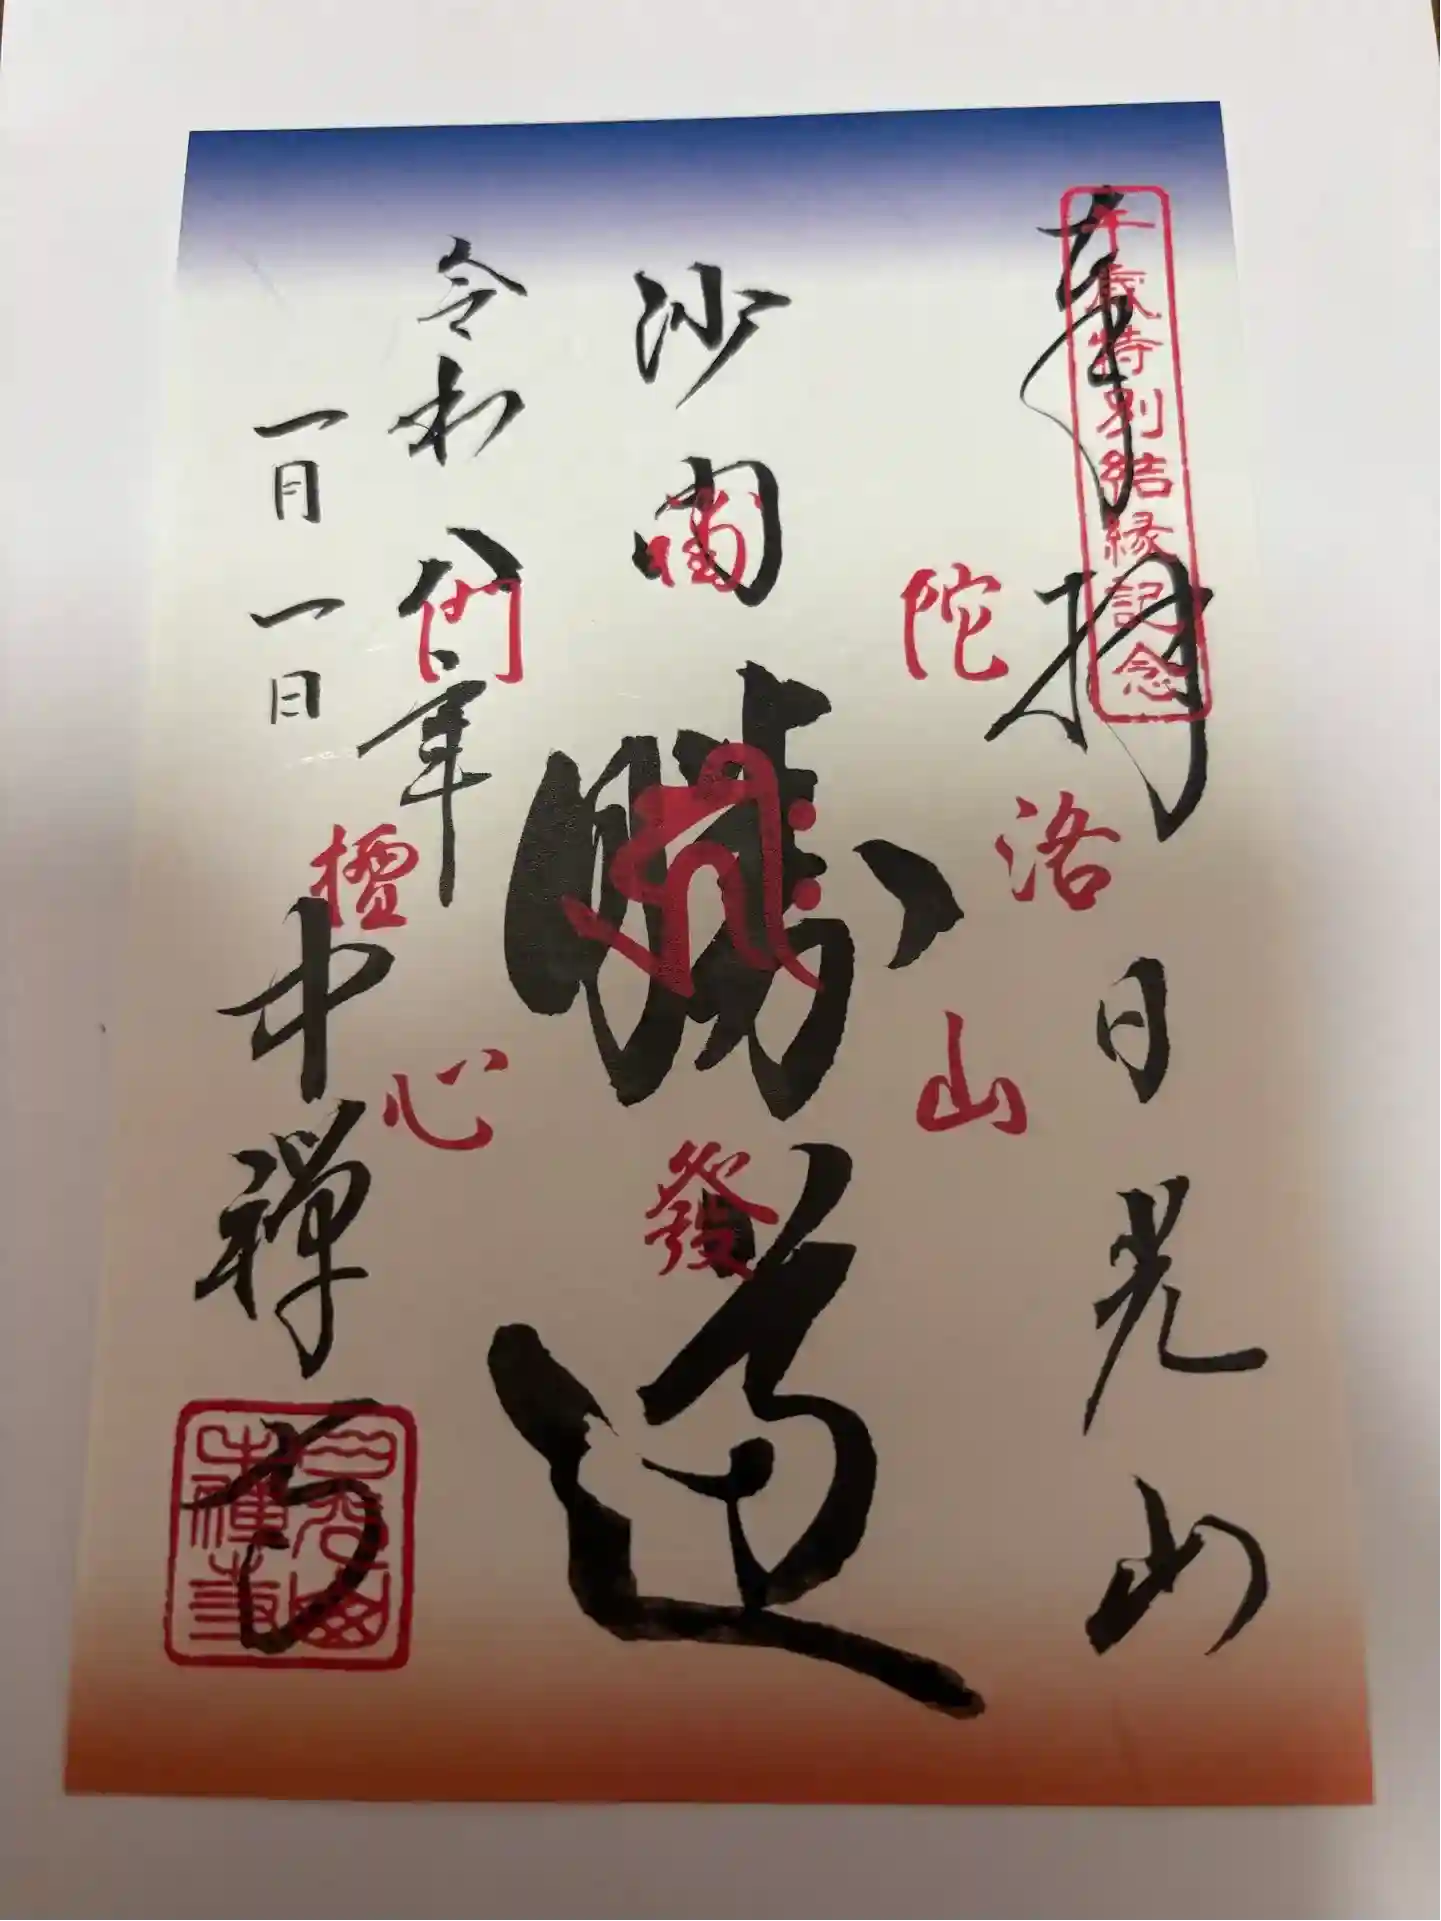 午歳特別結縁記念
奉拝
日光山
沙門
勝道
令和八年
一月一日
中禅寺
補陀洛山發心檀門